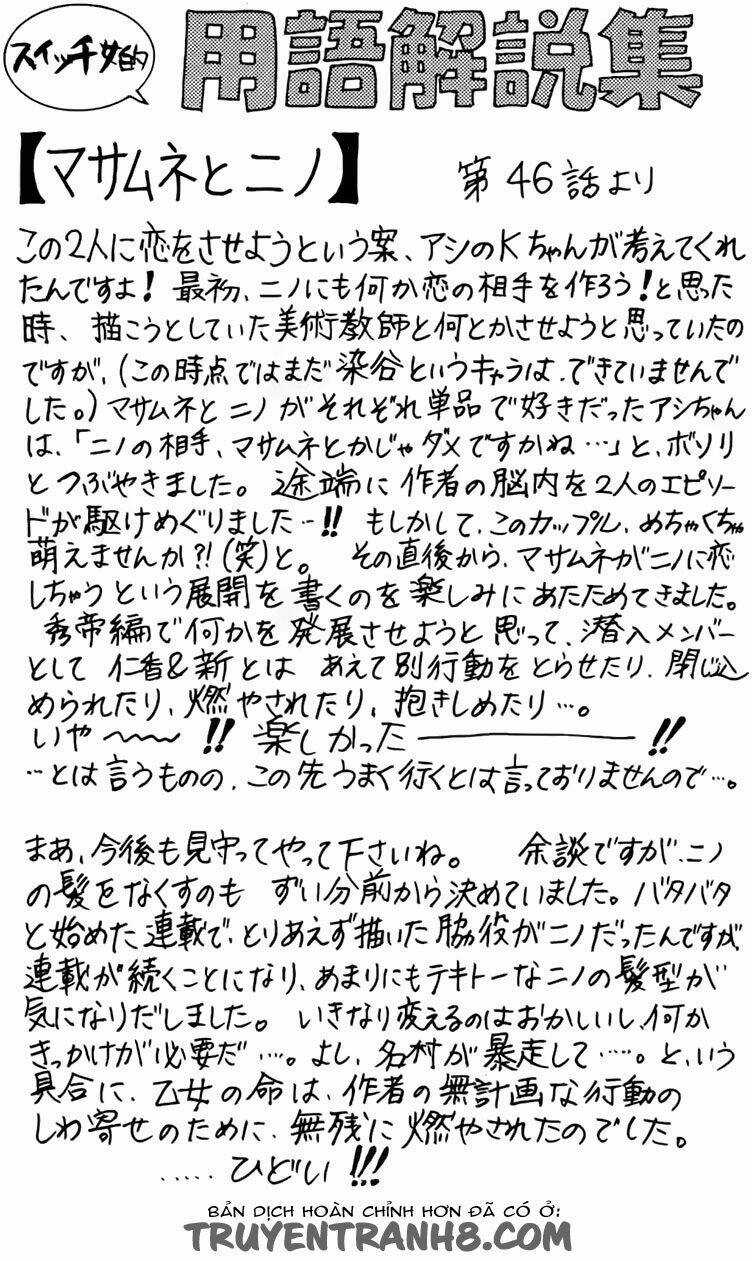 スイッチ女的
用語解説集
【マサムネとニノ】 第46話より
この2人に恋をさせようという案、アシのKちゃんが考えてくれ
たんですよ！ 最初、ニノにも何か恋の相手を作ろう！と思った
時、描こうとしていた美術教師と何とかさせようと思っていたの
ですが、(この時点ではまだ染谷というキャラは、できていませんで
した。) マサムネとニノがそれぞれ単品で好きだったアシちゃん
は、「ニノの相手、マサムネとかじゃダメですかね…」と、ボソリ
とつぶやきました。 途端に作者の脳内を2人のエピソー
ドが駆けめぐりました…!! もしかして、このカップル、めちゃくちゃ
萌えませんか?!(笑)と。 その直後から、マサムネがニノに恋
しちゃうという展開を書くのを楽しみにあたためてきました。
秀帝編で何かを発展させようと思って、潜入メンバー
として 仁香&新とは あえて別行動をとらせたり、閉じ込
められたり、燃やされたり、抱きしめたり…。
いや〜〜〜!! 楽しかった―――!!
…とは言うものの、この先うまく行くとは言っておりませんので…。
まあ、今後も見守ってやって下さいね。 余談ですが、ニノ
の髪をなくすのも ずい分前から決めていました。バタバタ
と始めた連載で、とりあえず描いた脇役がニノだったんですが、
連載が続くことになり、あまりにもテキトーなニノの髪型が
気になりだしました。 いきなり変えるのはおかしいし、何か
きっかけが必要だ…。よし、名村が暴走して……。と、いう
具合に、乙女の命は、作者の無計画な行動の
しわ寄せのために、無残に燃やされたのでした。
……ひどい!!!
BẢN DỊCH HOÀN CHỈNH HƠN ĐÃ CÓ Ở:
TRUYENTRANH8.COM